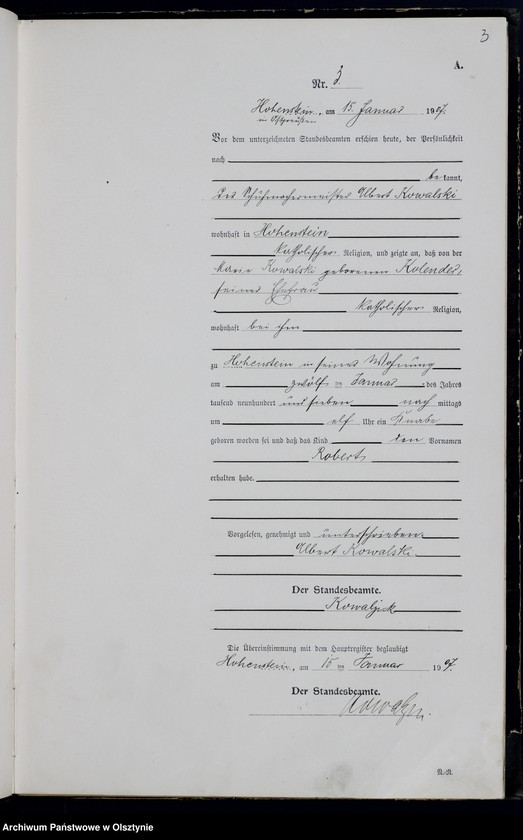 3
A.
Nr. 3.
Hohenstein, am 15. Januar 1907.
in Ostpreußen
Vor dem unterzeichneten Standesbeamten erschien heute, der Persönlichkeit
nach
bekannt,
der Schuhmachermeister Albert Kowalski
wohnhaft in Hohenstein
katholischer Religion, und zeigte an, daß von der
Marie Kowalski geborenen Kolender,
seiner Ehefrau
katholischer Religion,
wohnhaft bei ihm
zu Hohenstein in seiner Wohnung
am zwölften Januar des Jahres
tausend neunhundert und sieben nach mittags
um elf Uhr ein Knabe
geboren worden sei und daß das Kind den Vornamen
Robert
erhalten habe.
Vorgelesen, genehmigt und unterschrieben.
Albert Kowalski
Der Standesbeamte.
Kowaljick
Die Übereinstimmung mit dem Hauptregister beglaubigt
Hohenstein, am 15ten Januar 1907.
Der Standesbeamte.
Archiwum Państwowe w Olsztynie